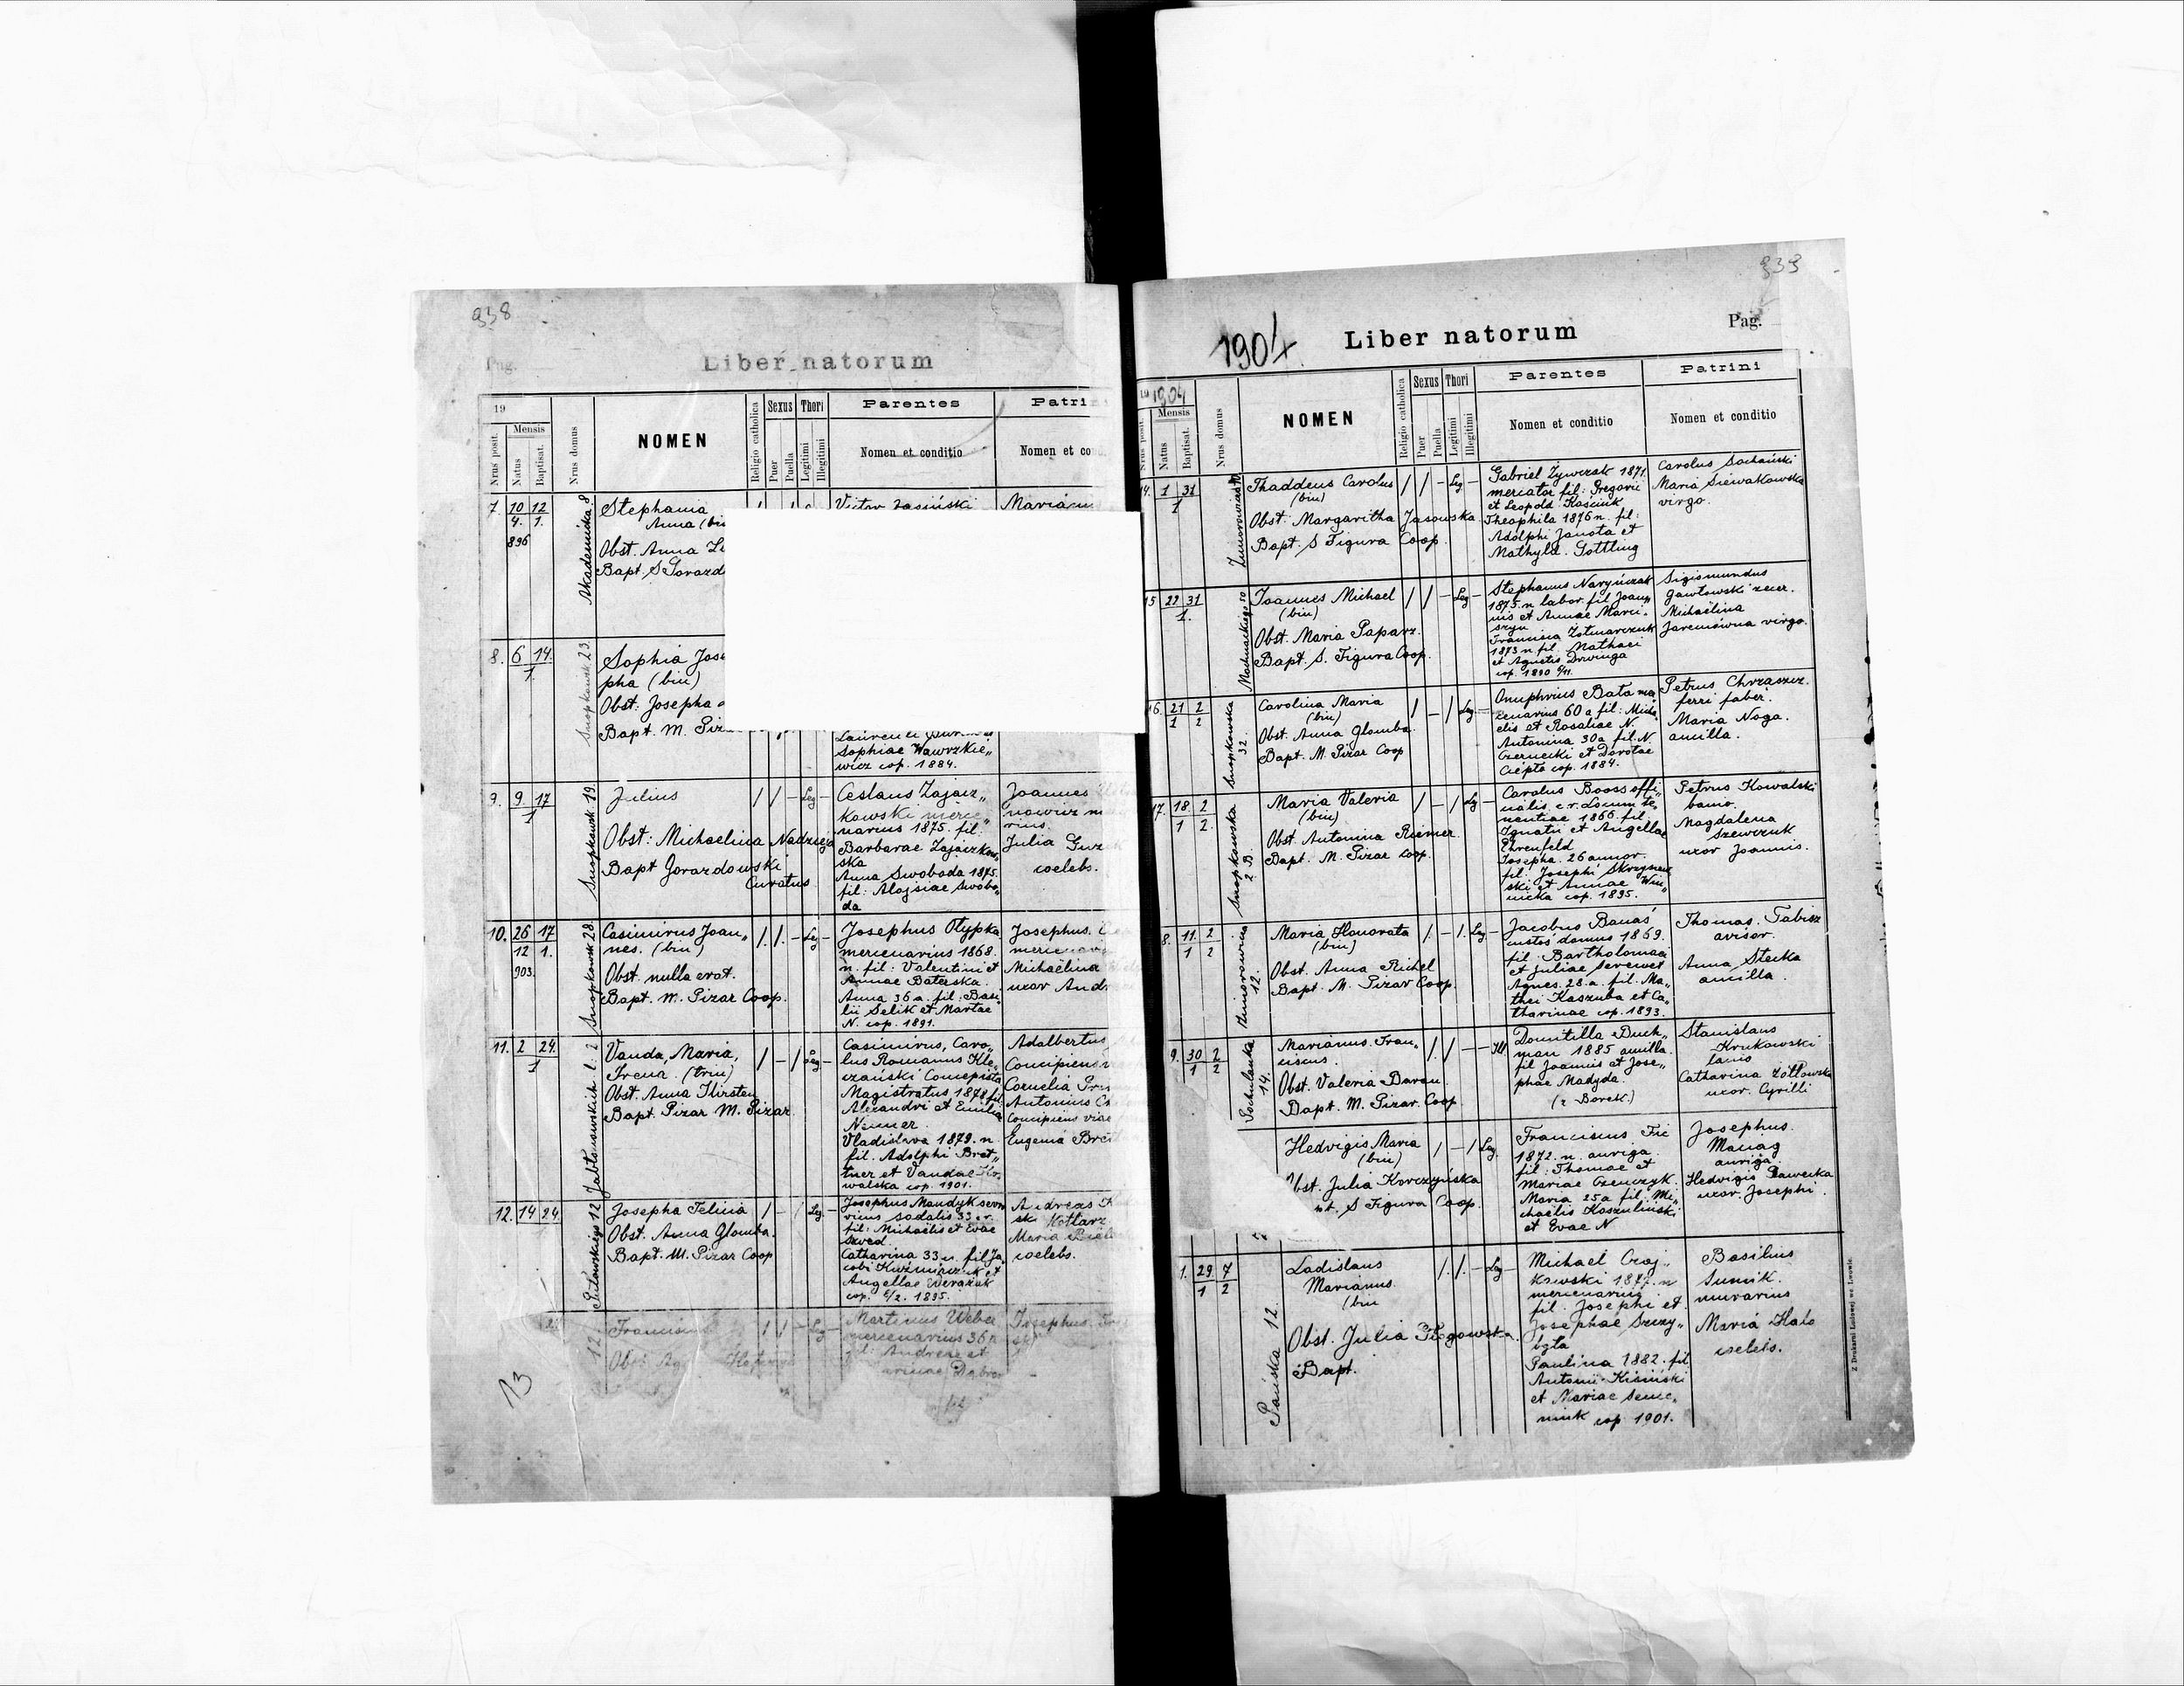 938
Pag.
Liber natorum
19
Mensis
Nrus posit.
Natus
Baptisat.
Nrus domus
NOMEN
Religio catholica
Sexus
Puer
Puella
Thori
Legitimi
Illegitimi
Parentes
Nomen et conditio
Patri
Nomen et co
7. 10 12
4. 1.
896
Akademicka 8
Stephania
Anna (bin
Obst. Anna
Bapt. S Gorazd
Victor Jasiński
Marianu
8. 6 14.
1.
Snopkowsk 23.
Sophia Jose
pha (bin)
Obst: Josepha
Bapt. M. Piz
Sophiae Wawrzkie„
wicz cop. 1884.
9. 9. 17
1
Snopkowsk. 19.
Julius
Obst: Michaelina Nadzieja
Bapt Gorazdowski
Curatus
/ / — Leg —
Ceslaus Zając„
kowski merce„
narius 1875. fil:
Barbarae Zajączkow„
ska
Anna Swoboda 1875.
fil: Aloysiae Swobo„
da
Joannes
nowicz m
rius.
Julia
coelebs.
10. 26 17
12 1.
903.
Snopkowsk 28.
Casimirus Joan„
nes. (bin)
Obst. nulla erat.
Bapt. M. Pizar Coop.
/. /. — Leg —
Josephus Otypka
mercenarius 1868.
n. fil: Valentini et
Annae Baterska.
Anna 36 a. fil: Basi„
lii Selik et Martae
N. cop. 1891.
Josephus.
mercenari
Michaëlina
uxor And
11. 2 24.
1
Jabłonowskich l: 2
Vanda, Maria,
Irena. (trin)
Obst. Anna Kirsten
Bapt. Pizar M. Pizar
/ — / Leg —
Casimirus, Caro„
lus Romanus Kle„
czański Concepista
Magistratus 1878 fil:
Alexandri et Emilia
Neimer.
Vladislava 1879. n.
fil. Adolphi Bret„
tner et Vandae Ko„
walska cop. 1901.
Adalbertus
Concipiens
Cornelia
Antonius
Concipiens
Eugenia
12. 14 24.
Putawskiego 12
Josepha Felicia
Obst. Anna Glomba.
Bapt. M. Pizar Coop
/ — / Leg —
Josephus Mandyk
sodalis 33 a.
fil: Michaëlis et Evae
Szwed
Catharina 33 a. fil Ja„
cobi Kuźmińczuk et
Angellae
cop. 6/2. 1895.
Andreas
ski Kotlarz
Maria
coelebs.
13
12
Francisc
Obst.
/ / — Leg —
Martinus Weber
mercenarius 36 a
fil: Andreae et
Josephus
939
1904
Liber natorum
Pag.
1904
Mensis
Nrus posit.
Natus
Baptisat.
Nrus domus
NOMEN
Religio catholica
Sexus
Puer
Puella
Thori
Legitimi
Illegitimi
Parentes
Nomen et conditio
Patrini
Nomen et conditio
14. 1 31
1
Thaddeus Carolus
(bin)
Obst. Margaritha Jasowska
Bapt. S Figura Coop.
/ / — Leg —
Gabriel Żywczak 1871.
mercator fil: Gregorii
et Leopold Kaściuk
Theophila 1876 n. fil:
Adolphi Janota et
Mathyld. Gottling
Carolus Sochański
Maria Siewakowska
virgo.
15 22 31
1.
Ioannes Michael
(bin)
Obst. Maria Paparz.
Bapt. S. Figura Coop.
/ / — Leg —
Stephanus Naryńczak
1875. n. labor. fil Joan„
nis et Annae Marci„
szyn
1873 n. fil. Mathaei
et Agnetis Drwinga
cop. 1890
Sigismundus
Gawłowski
Michaëlina
Jaremówna virgo.
16. 21 2
1 2
Snopkowska
32.
Carolina Maria
(bin)
Obst. Anna Glomba.
Bapt. M Pizar Coop
/ — / Leg —
Onuphrius Bata me„
cenarius 60 a fil: Mich„
elis et Rosaliae N.
Antonina 30 a. fil. N
Czernecki et Dorotae
Ciepła cop. 1884.
Petrus Chrząszcz.
ferri faber.
Maria Noga.
ancilla.
17. 18. 2
1 2.
Snopkowska
2 B.
Maria Valeria
(bin)
Obst. Antonina Riemer.
Bapt. M. Pizar Coop.
/ — / Leg —
Carolus Booss offi„
cialis c. r. Locum te„
nentiae 1866. fil.
Ignatii et Angellae
Ehrenfeld
Josepha. 26 annor.
fil: Josephi Skrzynew
ski et Annae Win„
nicka cop. 1895.
Petrus Kowalski
Magdalena
Szewczuk
uxor Joannis.
8. 11. 2
1 2
Zimorowicza
12.
Maria Honorata
(bin)
Obst. Anna Richel
Bapt. M. Pizar Coop.
/. — /. Leg —
Jacobus Banaś
custos domus 1869.
fil: Bartholomaei
et Juliae Serewet
Agnes. 28. a. fil. Ma„
thei Kaszuba et Ca„
tharinae cop. 1893.
Thomas. Tabisz
avisor.
Anna Stecka
ancilla.
9. 30 2
1 2
14.
Marianus. Fran„
ciscus.
Obst. Valeria Baran.
Bapt. M. Pizar. Coop.
/. / — — Ill
Domitilla Duch„
man 1885 ancilla.
fil Joannis et Jose„
phae Madyda.
(z Borek.)
Stanislaus
Krukowski
lanio
Catharina Żółtowska
uxor. Cyrilli
Hedvigis Maria
(bin)
Obst. Julia Korczyńska
pt. S Figura Coop.
/ — / Leg.
Franciscus Fic
1872. n. auriga.
fil: Thomae et
Mariae Czenczyk.
Maria 25 a fil: Mi„
chaëlis Koszuliński
et Evae N
Josephus.
Maciąg
auriga.
Hedvigis Dawecka
uxor. Josephi.
1. 29 7
1 2
Pańska 12.
Ladislaus
Marianus.
(bin
Obst. Julia Głogowska.
Bapt.
/. /. — Leg —
Michael Czaj„
kowski 1877. n
mercenarius
fil: Josephi et
Josephae Szczy„
bgła
Paulina 1882. fil
Antonii Kisiński
et Mariae Seme„
niuk cop. 1901.
Basilius
Sumik.
murarius
Maria Hało
coelebs.
Z Drukarni Ludowej we Lwowie.